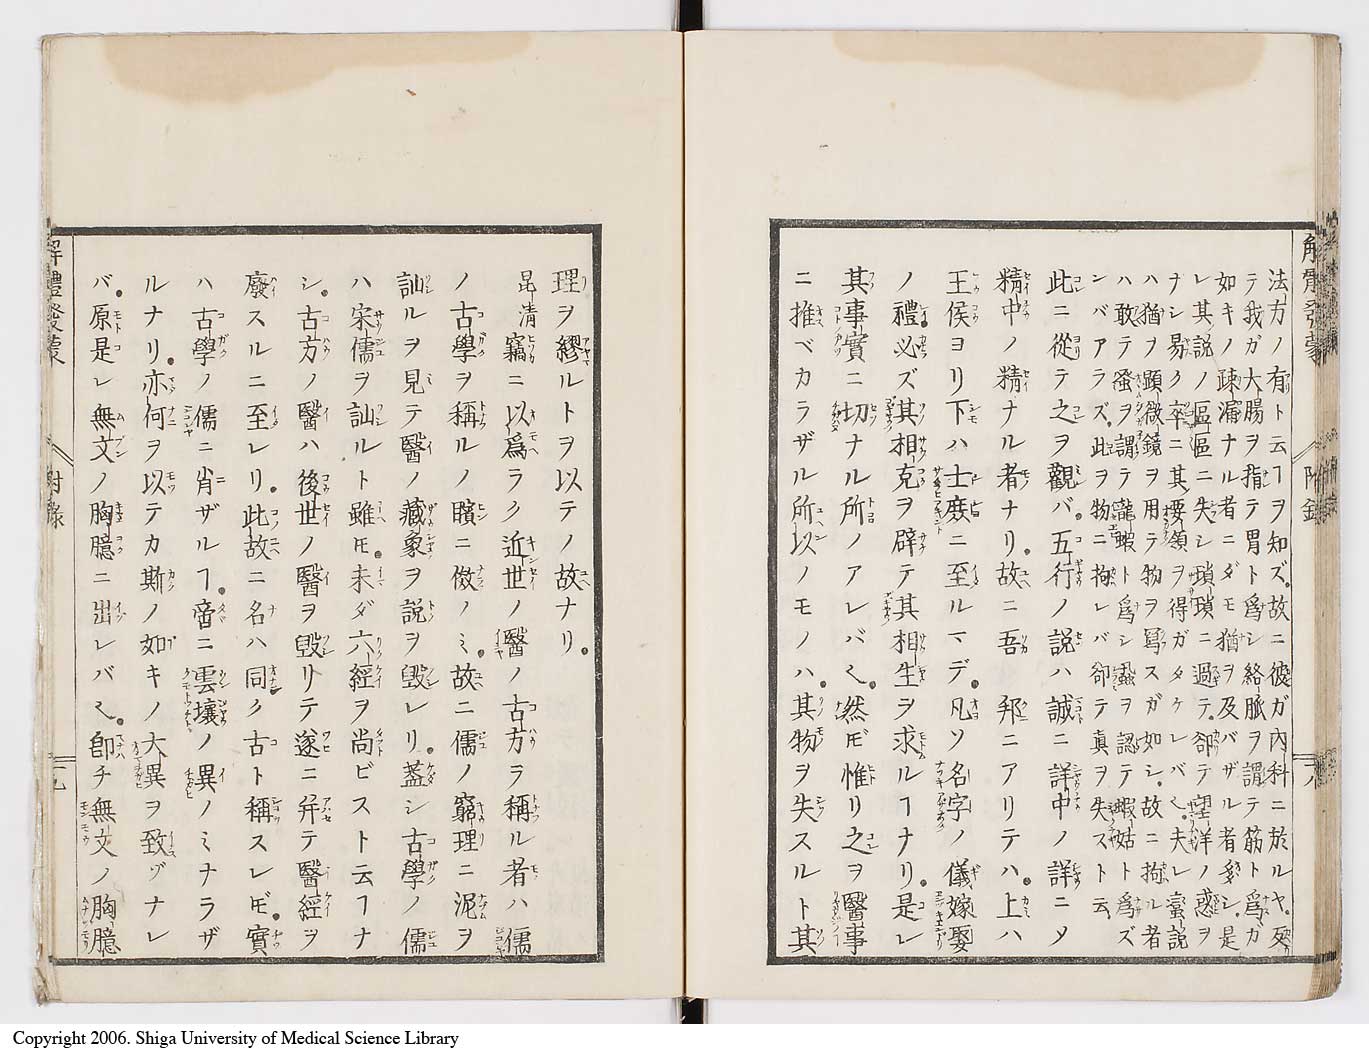 解體發蒙 附錄 十八
法方ノ有ト云ヿヲ知ズ。故ニ彼ガ內科ニ於ルヤ。殹
テ我ガ大腸ヲ指テ胃ト爲シ絡脈ヲ謂テ筋ト爲ガ
如キノ疎漏ナル者ニダモ猶ヲ及バザル者多シ。是
レ其說ノ區區ニ失シ瑣瑣ニ過テ。卻テ望洋ノ惑ヲ
ナシ易ク卒ニ其要領ヲ得ガタケレバ也。夫レ蛮說
ハ猶ヲ顕微鏡ヲ用テ物ヲ寫スガ如シ。故ニ拘ル者
ハ敢テ蚤ヲ謂テ龍蝦ト爲シ蝨ヲ認テ蝦蛄ト爲ズ
ンバアラズ。此ヲ物ニ拘レバ卻テ真ヲ失スト云
此ニ從テ之ヲ觀バ。五行ノ說ハ誠ニ詳中ノ詳ニメ
精中ノ精ナル者ナリ。故ニ吾 邦ニアリテハ。上ハ
王侯ヨリ下ハ士庶ニ至ルマデ。凡ソ名字ノ儀嫁娶
ノ禮必ズ其相克ヲ辟テ其相生ヲ求ルヿナリ。是レ
其事實ニ切ナル所ノアレバ也。然ドモ惟リ之ヲ醫事
ニ推ベカラザル所以ノモノハ。其物ヲ失スルト其
理ヲ繆ルトヲ以テノ故ナリ。
昆清 竊ニ以爲ラク近世ノ醫ノ古方ヲ稱ル者ハ儒
ノ古學ヲ稱ルノ矉ニ傚ノミ。故ニ儒ノ窮理ニ泥ヲ
訕ルヲ見テ醫ノ藏象ヲ說ヲ毀レリ。蓋シ古學ノ儒
ハ宋儒ヲ訕ルト雖ドモ。未ダ六經ヲ尚ビスト云ヿナ
シ。古方ノ醫ハ後世ノ醫ヲ毀リテ遂ニ并テ醫經ヲ
廢スルニ至レリ。此故ニ名ハ同ク古ト稱スレドモ。實
ハ古學ノ儒ニ肖ザルヿ。啻ニ雲壤ノ異ノミナラザ
ルナリ。亦何ヲ以テカ斯ノ如キノ大異ヲ致ゾナレ
バ。原是レ無文ノ胸臆ニ出レバ也。卽チ無文ノ胸臆
解體發蒙 附錄 十九
Copyright 2006. Shiga University of Medical Science Library